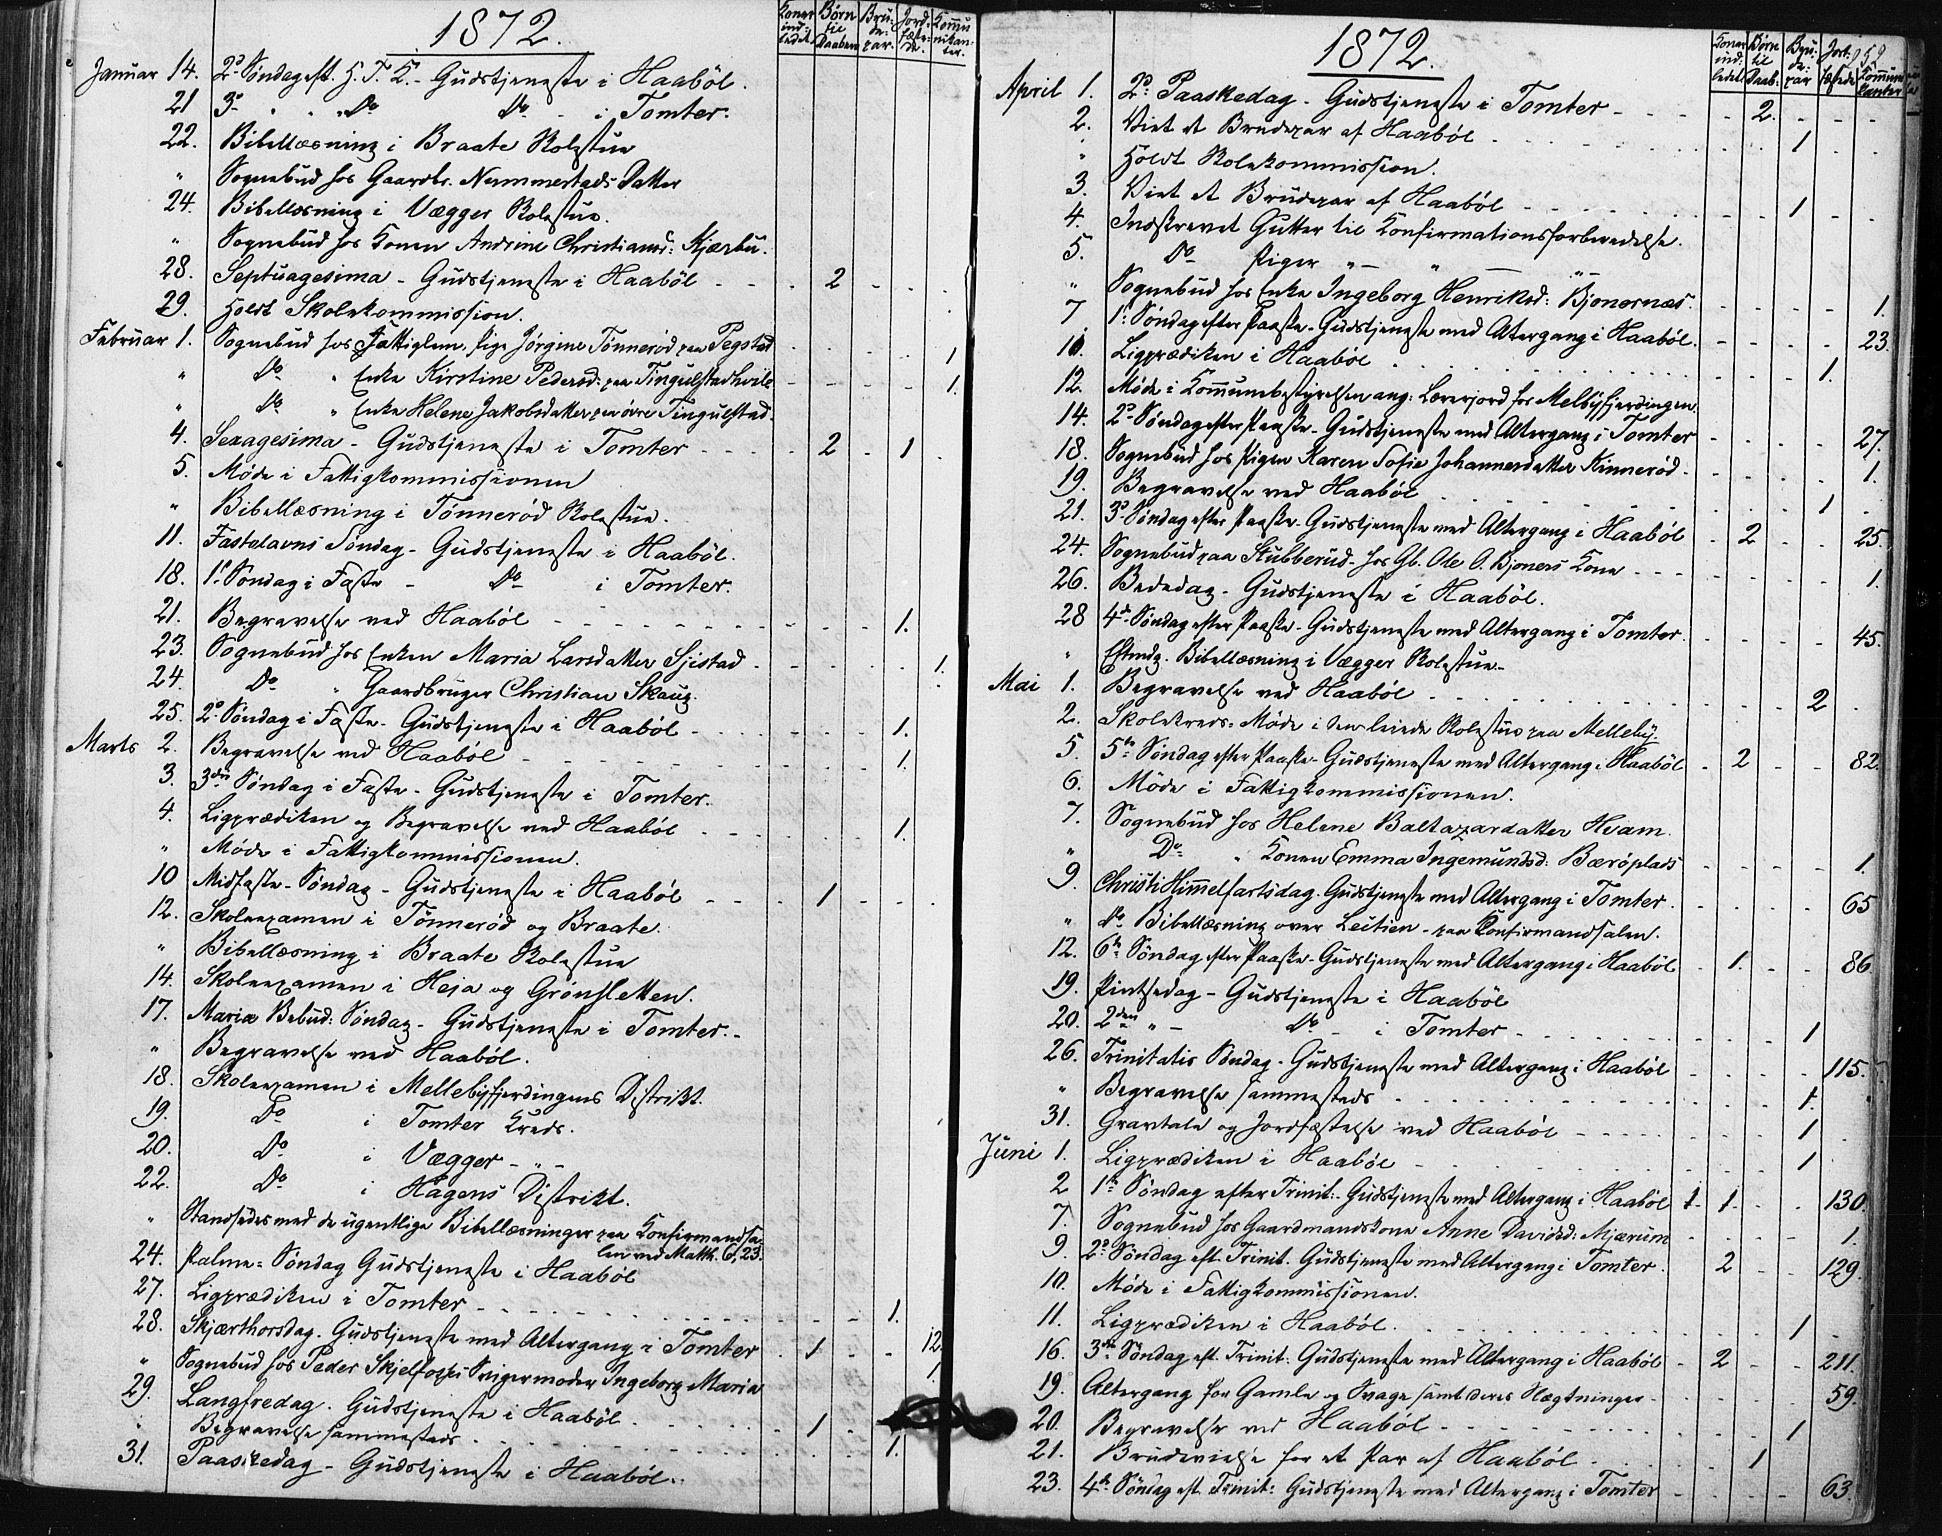 1872.
Koner indledet. Børn til Daaben Bru-de-par. Jord-fæste-de. Kommunikan-ter.
Januar 14. 2d Søndag eft. H. T. K. - Gudstjeneste i Haabøl.
21 3d " " Do Do - i Tomter.
22. Bibellæsning i Braate Skolestue
" Sognebud hos Gaardbr. Nummestads Datter
24. Bibellæsning i Vægger Skolestue.
" Sognebud hos Konen Andrine Christiansd: Kjærbu.
28. Septuagesima - Gudstjeneste i Haabøl - - - 2 - - -
29. Holdt Skolekommission.
Februar 1. Sognebud hos Fattiglem, Pige Jørgine Tønnerød paa Pegstad - - - 1.
" Do " Enke Kirstine Pedersd: paa Tingulstadhvile - - - - 1.
" Do " Enke Helene Jakobsdatter paa øvre Tingulstad.
4. Sexagesima - Gudstjeneste i Tomter - - - - 2 - 1 -
5. Møde i Fattigkommissionen
" Bibellæsning i Tønnerød Skolestue.
11. Fastelavns Søndag - Gudstjeneste i Haabøl.
18. 1s Søndag i Faste - Do i Tomter.
21. Begravelse ved Haabøl - - - - - - 1.
23. Sognebud hos Enken Maria Larsdatter Sjistad - - - - 1.
24. Do " Gaardbruger Christian Skaug.
25. 2d Søndag i Faste - Gudstjeneste i Haabøl - - - - 1.
Marts 2. Begravelse ved Haabøl - - - - - - 1.
3. 3die Søndag i Faste - Gudstjeneste i Tomter.
4. Ligprædiken og Begravelse ved Haabøl - - - - 1.
" Møde i Fattigkommissionen.
10 Midfaste-Søndag - Gudstjeneste i Haabøl - - - 1 - - -
12. Skoleexamen i Tønnerød og Braate
" Bibellæsning i Braate Skolestue
14. Skoleexamen i Heja og Grønsletten.
17. Mariæ Bebud: Søndag - Gudstjeneste i Tomter. -
" Begravelse ved Haabøl.
18. Skoleexamen i Mellebyfjerdingens Distrikt.
19. Do i Tomter Kreds.
20. Do i Vægger - " -
22. Do i Hagens Distrikt.
" Standsedes med de ugentlige Bibellæsninger paa Konfirmandsa-
len ved Matth. 6, 23.
24. Palme-Søndag Gudstjeneste i Haabøl
27. Ligprædiken i Tomter - - - - - - 1.
28. Skjærthorsdag. Gudstjeneste med Altergang i Tomter - 1 - - 12
" Sognebud hos Peder Skjelfoss's Svigermoder Ingeborg Maria 1.
29. Langfredag. Gudstjeneste i Haabøl - - - - 1 -
" Begravelse sammesteds - - - - - 1.
31. Paaskedag - Gudstjeneste i Haabøl.
1872.
Koner ind-ledet. Børn til Daab. Bru-de-par Jord-fæstede Kommunikanter
April 1. 2d Paaskedag - Gudstjeneste i Tomter - - - - 2 - - -
2. Viet et Brudepar af Haabøl - - - - - 1 - -
" Holdt Skolekommission.
3. Viet et Brudepar af Haabøl - - - - - 1 - -
4. Indskrevet Gutter til Konfirmationsforberedelse.
5. Do Piger " - " - " -
" Sognebud hos Enke Ingeborg Henriksd: Bjonernæs - - - - 1.
7 1s Søndag efter Paaske - Gudstjeneste med Altergang i Haabøl - - - - 23.
10. Ligprædiken i Haabøl - - - - - - 1.
12. Møde i Kommunebestyrelsen ang: Lærerjord for Melbyfjerdingen.
14. 2d Søndag efter Paaske - Gudstjeneste med Altergang i Tomter - - - - 27.
18. Sognebud hos Pigen Karen Sofie Johannesdatter Kinnerød - - - - 1.
19. Begravelse ved Haabøl - - - - - - 1 -
21. 3d Søndag efter Paaske - Gudstjeneste med Altergang i Haabøl - 2 - - 25.
24. Sognebud paa Stubberud - hos Gb. Ole O. Bjoners Kone - - - - 1.
26. Bededag - Gudstjeneste i Haabøl.
28 4d Søndag efter Paaske - Gudstjeneste med Altergang i Tomter - - - - 45.
" Eftmdg. Bibellæsning i Vægger Skolestue. -
Mai 1. Begravelse ved Haabøl - - - - - - 2 .
2. Skolekreds-Møde i den leiede Skolestue paa Melleby.
5. 5te Søndag efter Paaske - Gudstjeneste med Altergang i Haabøl - 2 - - 82.
6. Møde i Fattigkommissionen.
7. Sognebud hos Helene Baltazardatter Hvam.
" Do " Konen Emma Ingemundsd: Bærøplads - - - - 1.
9. Christi Himmelfartsdag. Gudstjeneste med Altergang i Tomter - - - - 65
" do Bibellæsning over Lectien - paa Konfirmandsalen.
12. 6te Søndag efter Paaske - Gudstjeneste med Altergang i Haabøl - 1. - - 86
19. Pintsedag - Gudstjeneste i Haabøl
20. 2den " - Do - i Tomter - - - - - 1
26. Trinitatis Søndag - Gudstjeneste med Altergang i Haabøl - - - - 115.
" Begravelse sammesteds - - - - - - 1.
31. Gravtale og Jordfæstelse ved Haabøl - - - - - 1 .
Juni 1. Ligprædiken i Haabøl - - - - - - 1
2 1ste Søndag efter Trinit: - Gudstjeneste med Altergang i Haabøl 1. 1. - - 130.
7. Sognebud hos Gaardmandskone Anne Davidsd: Mjærum - - - - 1.
9 2d Søndag eft. Trinit. Gudstjeneste med Altergang i Tomter. 2 - - 129.
10. Møde i Fattigkommissionen.
11. Ligprædiken i Haabøl. - - - - - - 1 -
16. 3die Søndag eft. Trinit: Gudstjeneste med Altergang i Haabøl - 2 - - 211.
19. Altergang for Gamle og Svage samt deres Slægtninger - - - - 59.
20. Begravelse ved Haabøl - - - - - - 1
21. Brudevielse for et Par af Haabøl - - - - 1
23. 4de Søndag eft. Trinit: Gudstjeneste med Altergang i Tomter - - - - 63.